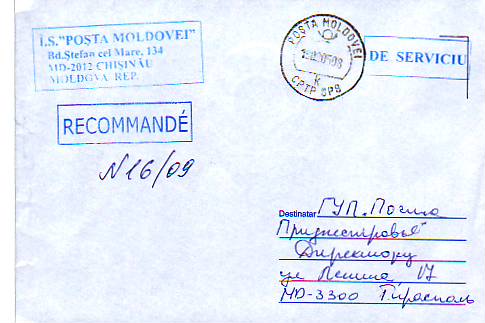 Î.S."POŞTA MOLDOVEI"
Bd.Ştefan cel Mare, 134
MD-2012 CHIŞINĂU
MOLDOVA REP.
POŞTA MOLDOVEI
K
CPTP
DE SERVICIU
RECOMMANDÉ
N16/09
Destinatar ГУП. Почта
Приднестровья"
Директору
ул Ленина 17
MD-3300 Тирасполь